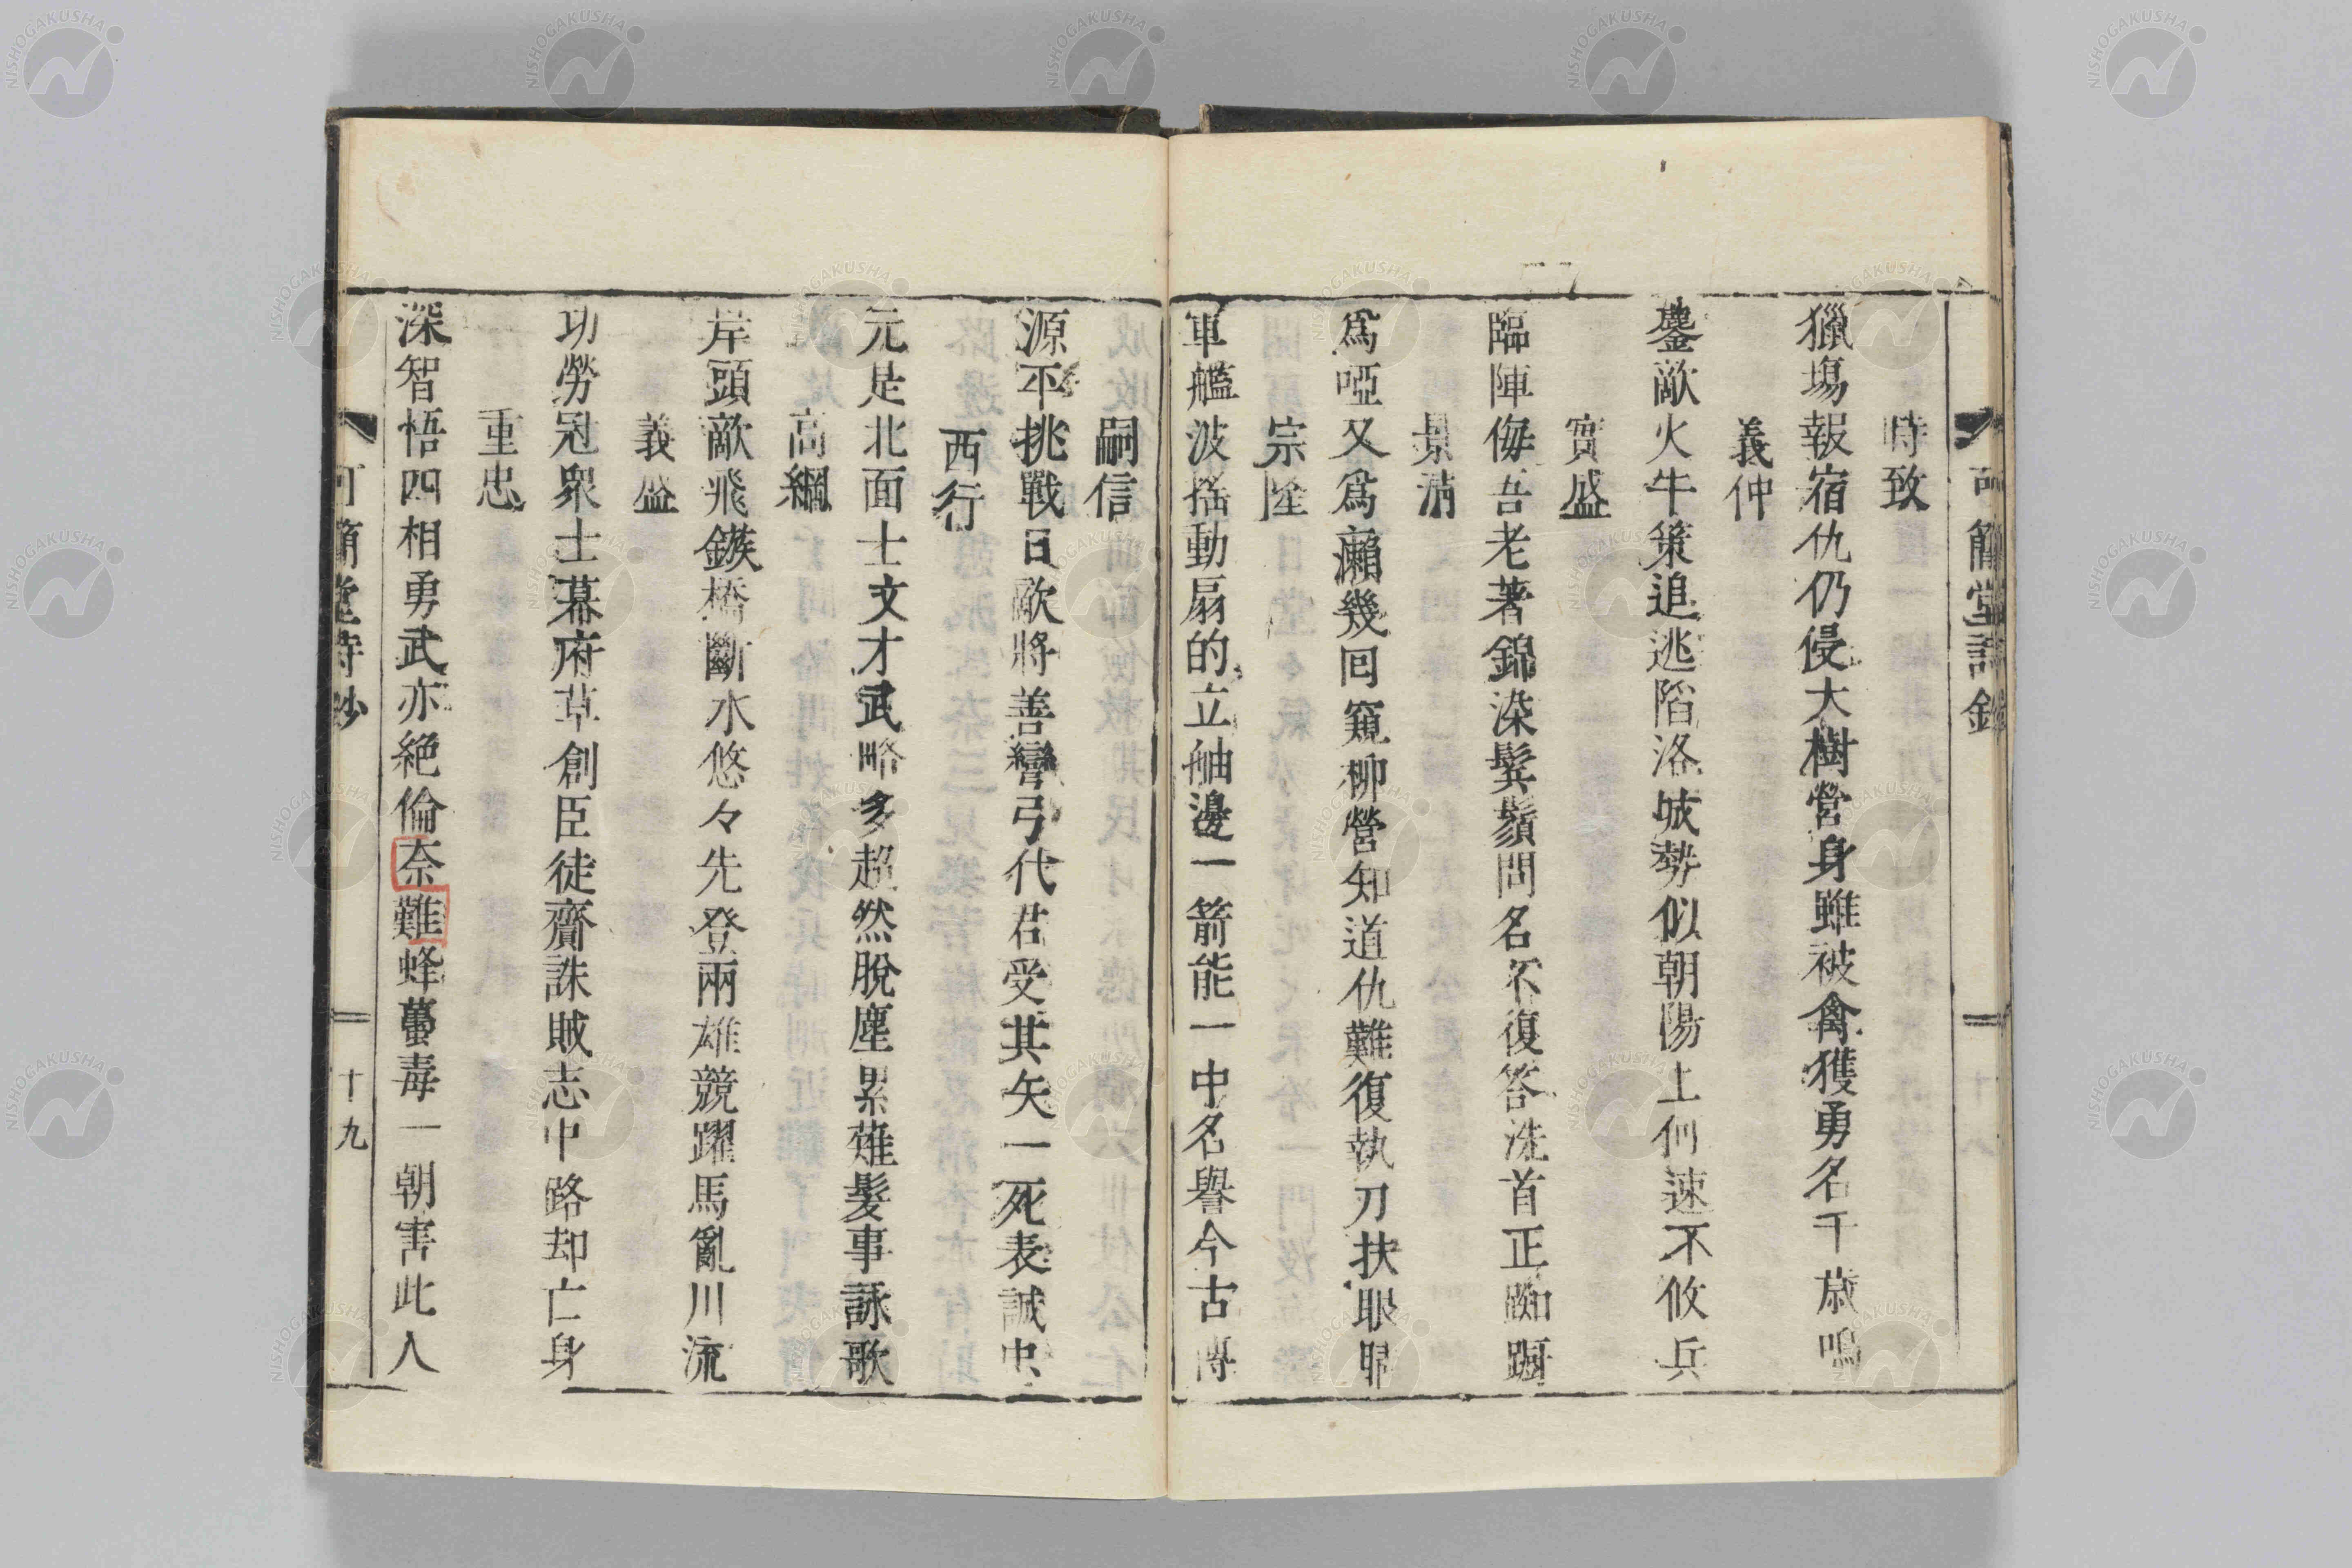 時致
獵塲報宿仇仍侵大樹營身雖被禽獲勇名千歲鳴
義仲
鏖敵火牛策追逃陷洛城勢似朝陽上何速不攸兵
實盛
臨陣侮吾老著錦染鬂鬚問名不復答洗首正踟躕
景清
爲啞又爲癩幾回窺柳營知道仇難復執刀抉眼睛
宗隆
軍艦波搖動扇的立舳邊一箭能一中名譽今古傳
嗣信
源平挑戰日敵將善彎弓代君受其矢一死表誠忠
西行
元是北面士文才武略多超然脫塵累薙髮事詠歌
高綱
岸頭敵飛鏃橋斷水悠々先登兩雄競躍馬亂川流
義盛
功勞冠衆士幕府草創臣徒齎誅賊志中路却亡身
重忠
深智悟四相勇武亦絕倫奈難蜂蠆毒一朝害此人
可簡堂詩鈔
十九
NISHOGAKUSHA